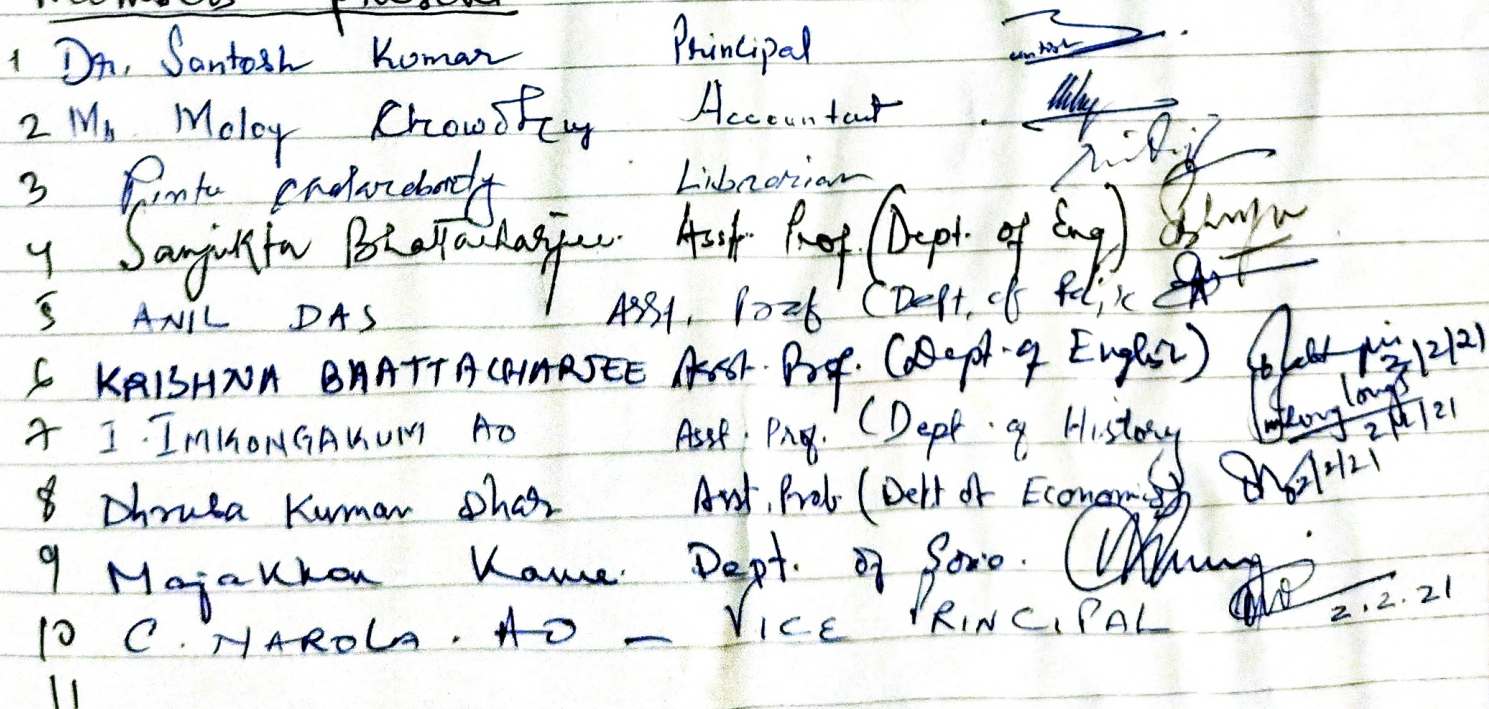 Members present
1 Dr. Santosh Kumar Principal
2 Mr Moloy Chowdhury Accountant
3 Pintu Chakraborty Librarian
4 Sanjukta Bhattacharjee. Asst. Prof. (Dept. of Eng)
5 ANIL DAS Asst. Prof (Deptt. of Pol, sc
6 KRISHNA BHATTACHARJEE Asst. Prof. (Dept. of English) 2/2/21
7 I. IMKONGAKUM AO Asst. Prof. (Dept. of History 2/2/21
8 Dhruba Kumar Dhar Asst. Prof. (Dett of Economics) 2/2/21
9 Majakhon Kame. Dept. of Socio.
10 C. NAROLA. AO - VICE PRINCIPAL 2.2.21
11